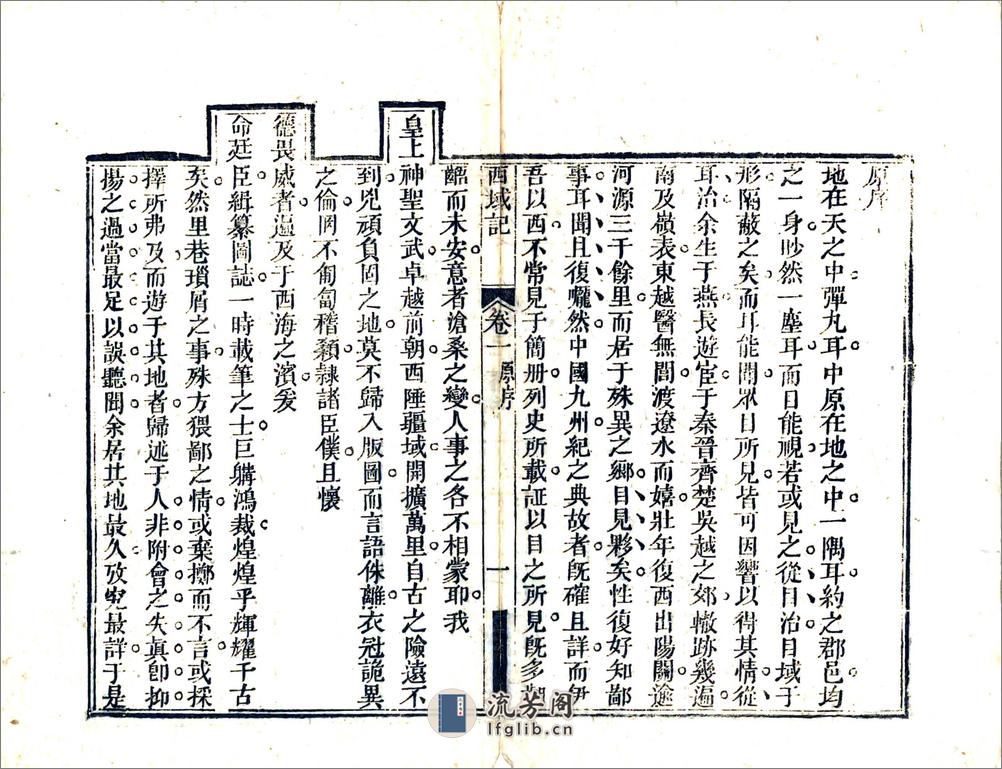 原序
地在天之中彈丸耳中原在地之中一隅耳約之郡邑均
之一身眇然一塵耳而目能視若或見之從目治目域于
形隔蔽之矣而耳能聞眾目所見皆可因響以得其情從
耳治余生于燕長遊宦于秦晉齊楚吳越之郊轍跡幾遍
南及嶺表東越醫無閭渡遼水而嬉壯年復西出陽關途
河源三千餘里而居于殊異之鄉目見夥矣性復好知鄙
事耳聞且復囑然中國九州紀之典故者既確且詳而伊
吾以西不常見于簡册列史所載証以目之所見既多齟
西域記 卷一 原序 一
齬而未安意者滄桑之變人事之各不相蒙耶我
皇上神聖文武卓越前朝西陲疆域開擴萬里自古之險遠不
到兇頑負固之地莫不歸入版圖而言語侏離衣冠詭異
之倫罔不匍匐稽顙隸諸臣僕且懷
德畏威者遍及于西海之濱爰
命廷臣緝纂圖誌一時載筆之士巨購鴻裁煌煌乎輝耀千古
矣然里巷瑣屑之事殊方猥鄙之情或棄擲而不言或採
擇所弗及而遊于其地者歸述于人非附會之失真即抑
揚之過當最足以誤聽聞余居其地最久攷究最詳于是
流芳阁
lfglib.cn